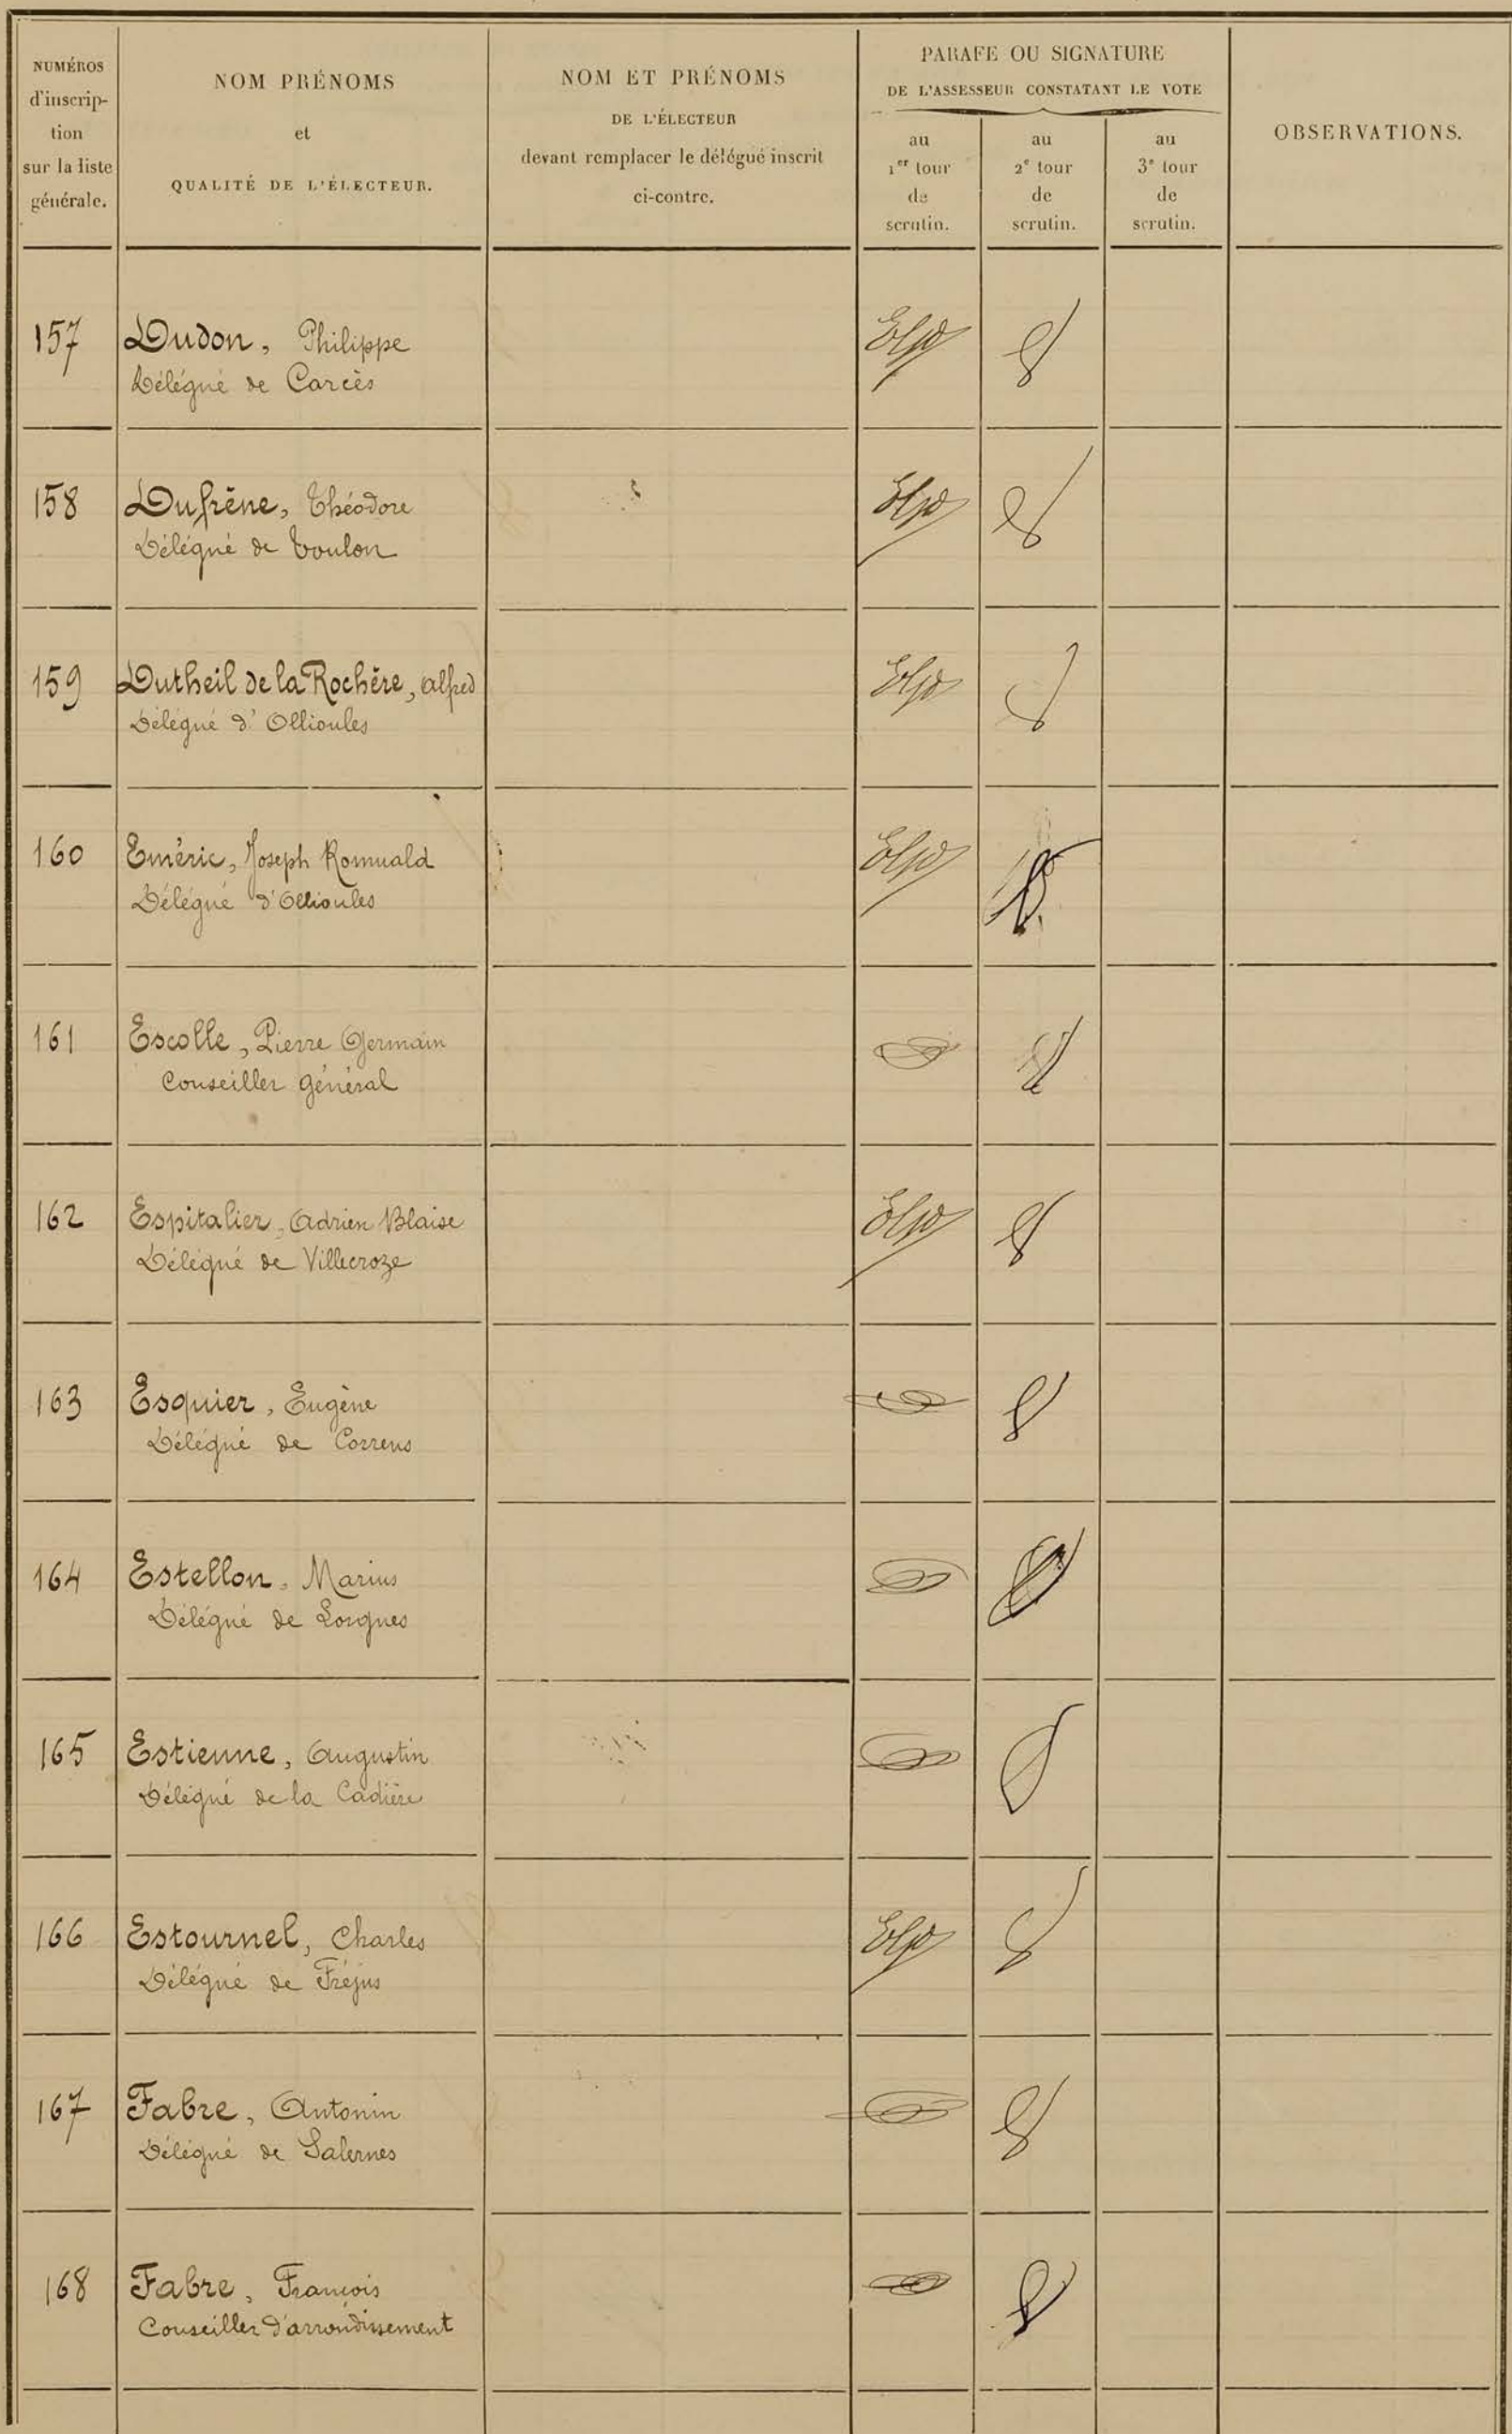 NUMÉROS
d'inscrip-
tion
sur la liste
générale.
NOM PRÉNOMS
et
QUALITÉ DE L'ÉLECTEUR.
NOM ET PRÉNOMS
DE L'ÉLECTEUR
devant remplacer le délégué inscrit
ci-contre.
PARAFE OU SIGNATURE
DE L'ASSESSEUR CONSTATANT LE VOTE
au
1er tour
de
scrutin.
au
2e tour
de
scrutin.
au
3e tour
de
scrutin.
OBSERVATIONS.
157 Dudon, Philippe
Délégué de Carcès
158 Dufrêne, Théodore
Délégué de Toulon
159 Dutheil de la Rochère, Alfred
Délégué d'Ollioules
160 Eméric, Joseph Romuald
Délégué d'Ollioules
161 Escolle, Pierre Germain
Conseiller général
162 Espitalier, Adrien Blaise
Délégué de Villecroze
163 Esquier, Eugène
Délégué de Correns
164 Estellon, Marius
Délégué de Lorgues
165 Estienne, Augustin
Délégué de la Cadière
166 Estournel, Charles
Délégué de Fréjus
167 Fabre, Antonin
Délégué de Salernes
168 Fabre, François
Conseiller d'arrondissement